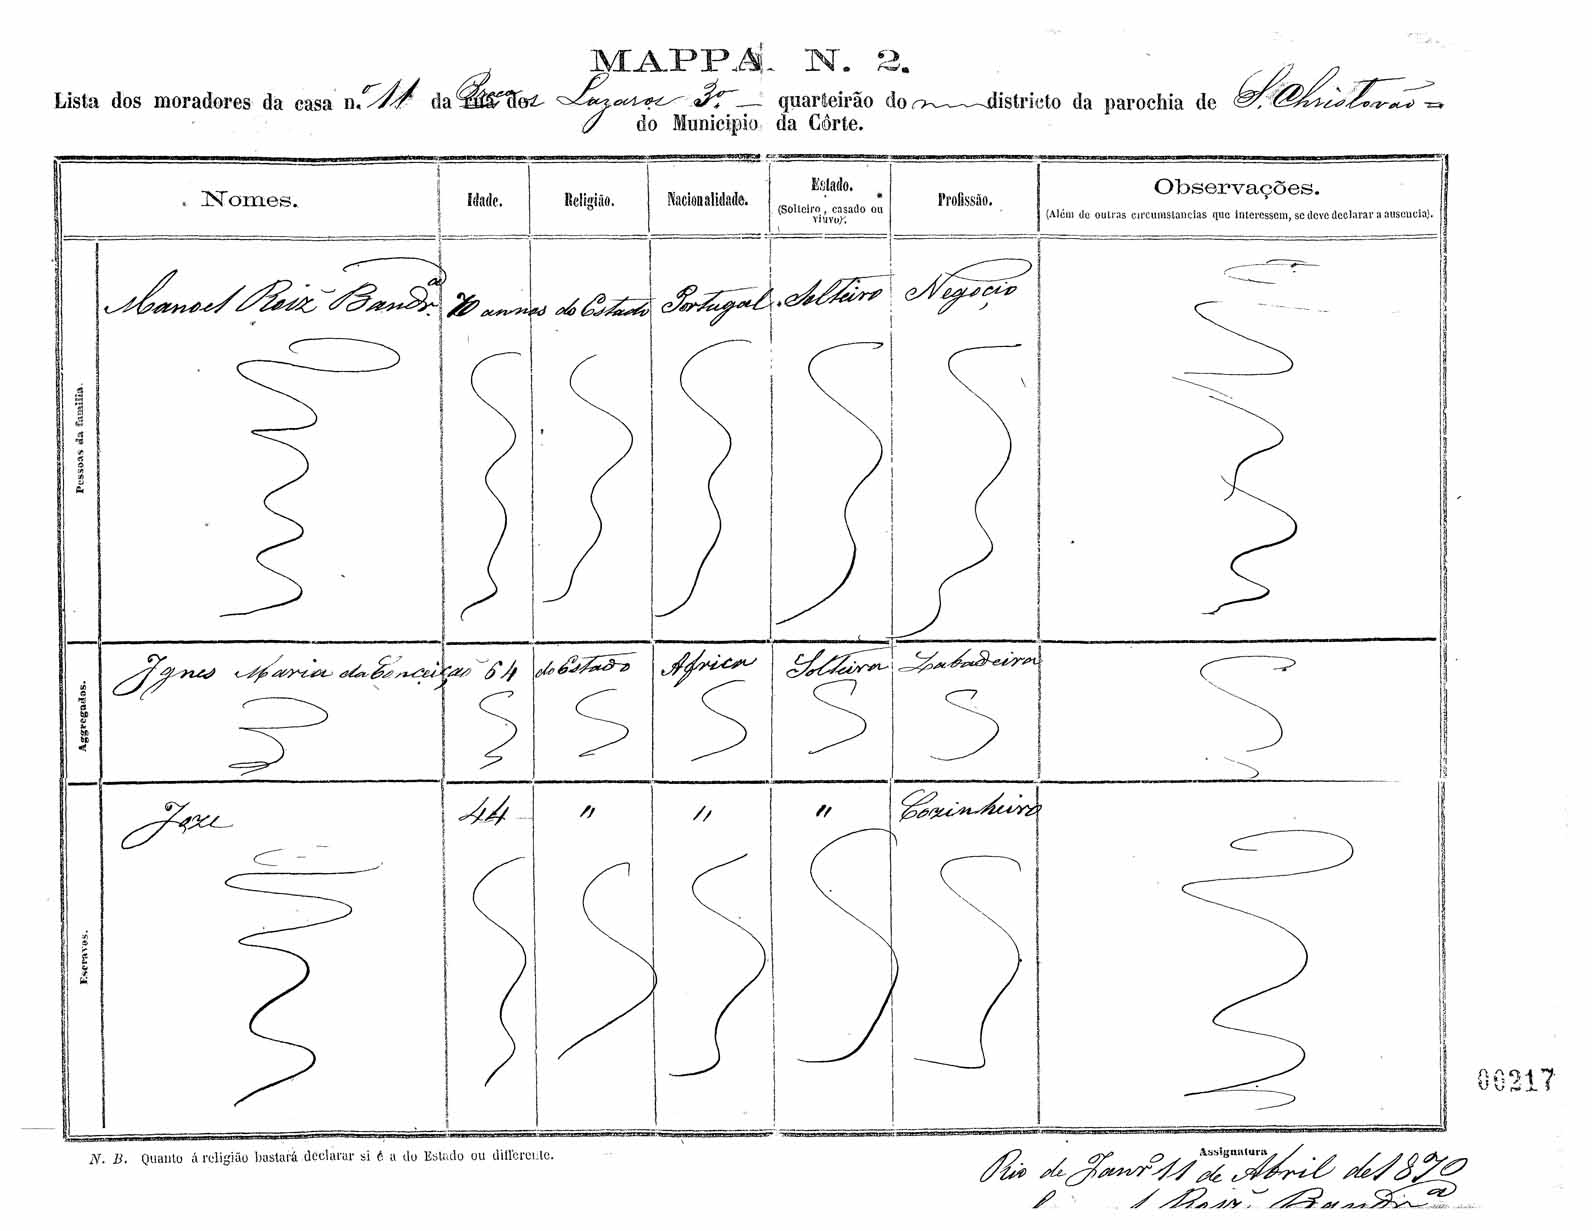 MAPPA N. 2.
Lista dos moradores da casa n.º 11 da Praça dos Lazaros 3.º — quarteirão do districto da parochia de S. Christovão =
do Municipio da Côrte.
Nomes. Idade. Religião. Nacionalidade. Estado. (Solteiro, casado ou viuvo). Profissão. Observações. (Além de outras circumstancias que interessem, se deve declarar a ausencia).
Pessoas da familia.
Manoel Roiz Bandr.ª 70 annos do Estado Portugal Solteiro Negocio
Aggregados.
Ignes Maria da Conceição 64 do Estado Africa Solteira Labadeira
Escravos.
Joze 44 " " " Cozinheiro
00217
N. B. Quanto á religião bastará declarar si é a do Estado ou differente.
Assignatura
Rio de Janrº 11 de Abril de 1870
Roiz Bandrª